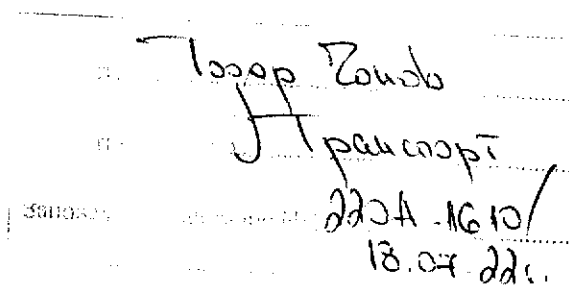 Тодор Тонов
Транспорт
220А-1610/
18.07.22г.